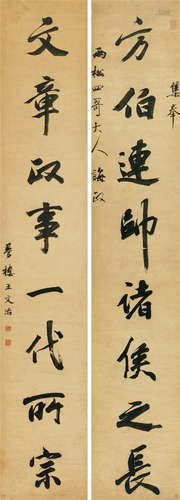 集奉
方伯連帥諸侯之長
兩松四哥大人誨政
文章政事一代所宗
夢樓王文治